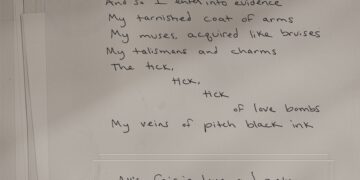 And so I enter into evidence
My tarnished coat of arms
My muses, acquired like bruises
My talismans and charms
The tick,
tick,
tick
of love bombs
My veins of pitch black ink
All's fair in love and poetry